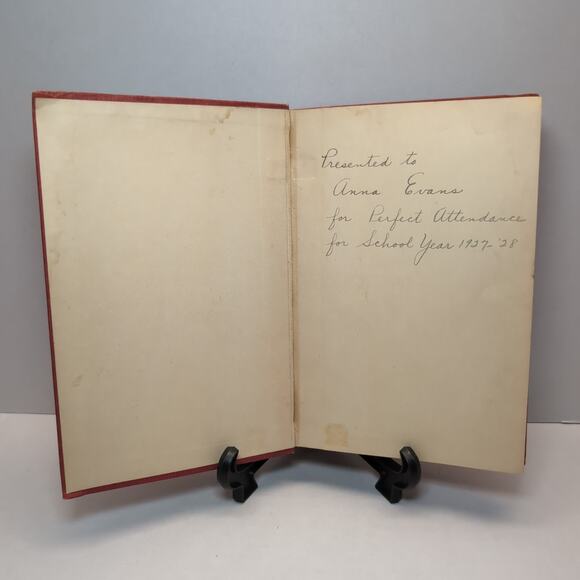 Presented to
Anna Evans
for Perfect Attendance
for School Year 1927-'28